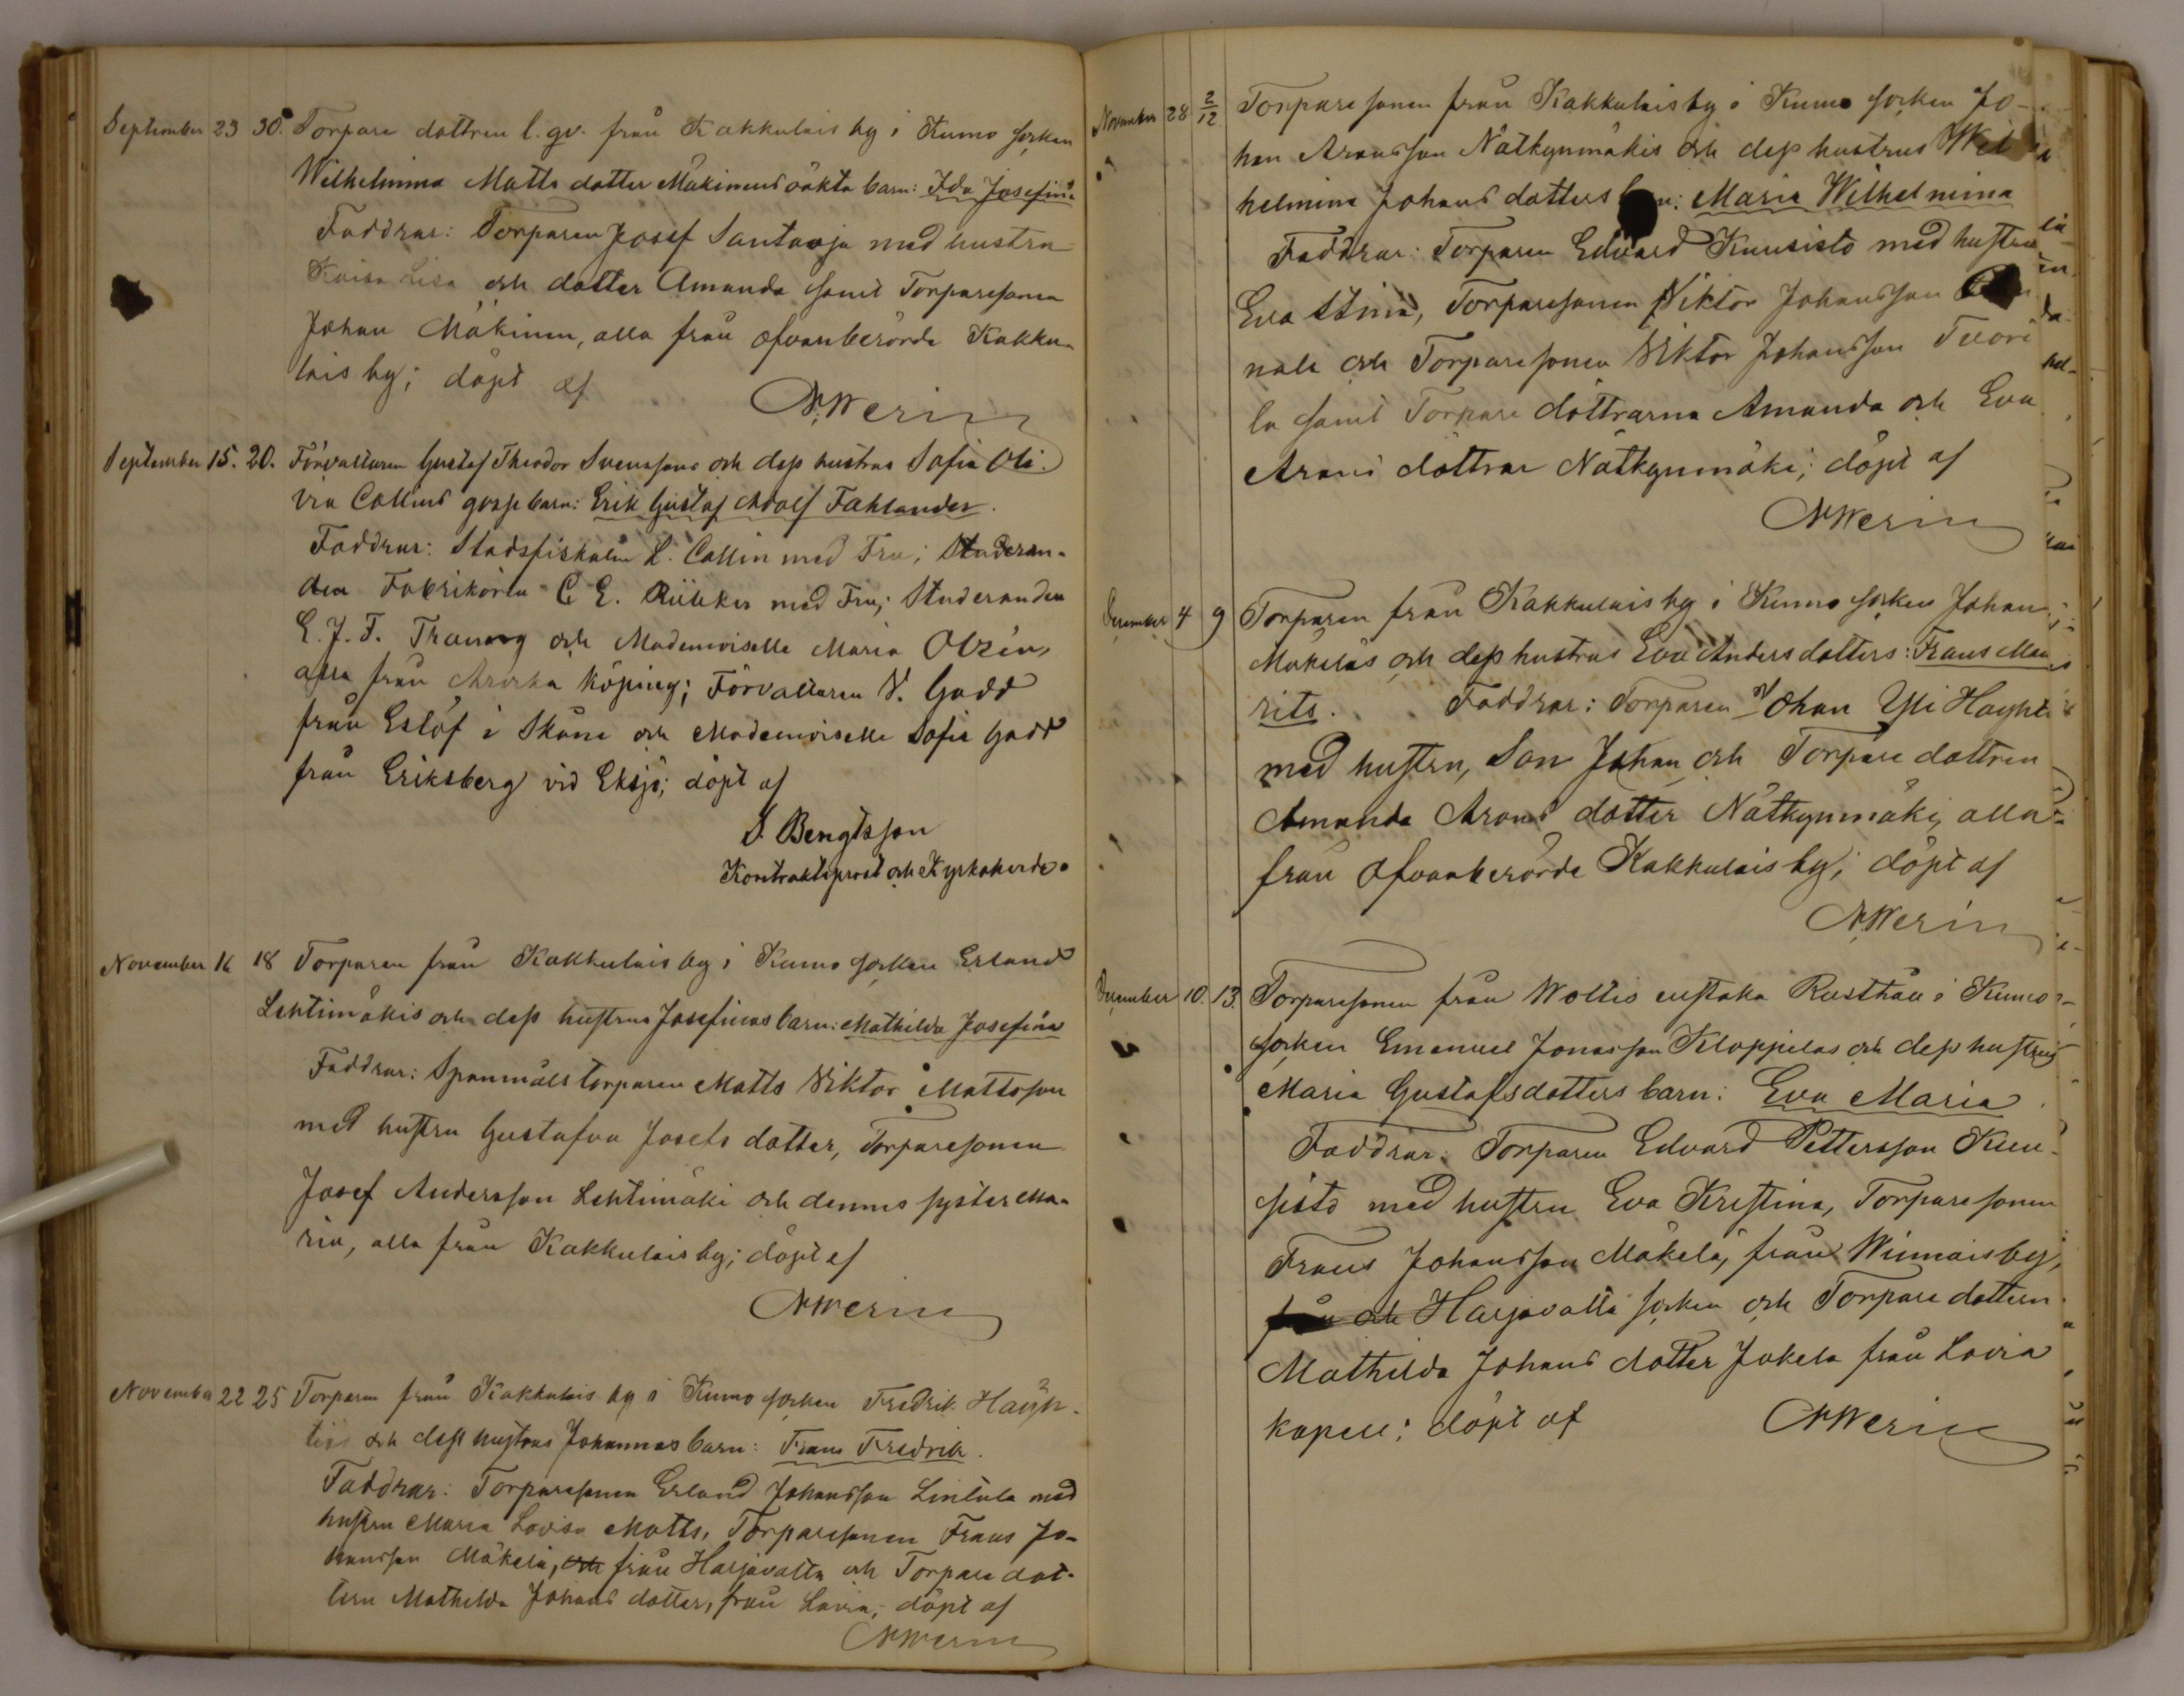 September 23 30. Torpare dottren l. qv. från Kakkulais by i Kumo socken
Wilhelmina Matts dotter Mäkinens oäkta barn: Ida Josefina
Faddrar: Torparen Josef Santaoja med hustru
Kaisa Lisa och dotter Amanda samt Torparesonen
Johan Mäkinen, alla från ofvanberörde Kakku-
lais by; döpt af
A. Werin
September 15. 20. Förvaltaren Gustaf Theodor Svenssons och dess hustrus Sofia Oli-
via Collins gossebarn: Erik Gustaf Adolf Fahlander.
Faddrar: Stadsfiskalen L. Collin med Fru; Studeran-
den Fabrikören C. E. med Fru; Studeranden
E. J. F. och Mademoiselle Maria Olzén,
alla från köping; Förvaltaren V. Gadd
från Eslöf i Skåne och Mademoiselle Sofie Gadd
från Eriksberg vid Eksjö; döpt af
S. Bengtsson
Kontraktsprost och Kyrkoherde.
November 16 18 Torparen från Kakkulais by i Kumo socken Erland
Lehtimäkis och dess hustrus Josefinas barn: Mathilda Josefina
Faddrar: Spanmåls torparen Matts Viktor Mattsson
med hustru Gustafva Josefs dotter, Torparesonen
Josef Andersson Lehtimäki och dennes syster Ma-
ria, alla från Kakkulais by; döpt af
A. Werin
November 22 25 Torparen från Kakkulais by i Kumo socken Fredrik Hayh-
tiös och dess hustrus Johannas barn: Frans Fredrik.
Faddrar: Torparesonen Erland Johansson Lintula med
hustru Maria Lovisa Matts, Torparesonen Frans Jo-
hansson Mäkelä, och från Harjavalta och Torpare dot-
tern Mathilda Johans dotter, från Lavia; döpt af
A. Werin
November 28 2/12 Torpare sonen från Kakkulais by i Kumo socken Jo-
han Aronsson Nätkynmäkis och dess hustrus Wil
helmina Johans dotters n: Maria Wilhelmina
Faddrar: Torparen Edvard Kuusisto med hustru
Eva Stina, Torparesonen Viktor Johansson
nala och Torparesonen Viktor Johansson Tuori
la samt Torpare döttrarna Amanda och Eva
Arons döttrar Nätkynmäki; döpt af
A. Werin
December 4 9 Torparen från Kakkulais by i Kumo socken Johan
Mäkeläs och dess hustrus Eva Anders dotters: Frans Mau
rits. Faddrar: Torparen Johan Yli Hayhti
med hustru, Son Johan och Torpare dottren
Amanda Arons dotter Nätkynmäki, alla
från ofvanberörde Kakkulais by; döpt af
A. Werin
December 10. 13. Torparesonen från Woltis enstaka Rusthåll i Kumo
socken Emanuel Jonasson Kloppilas och dess hustrus
Maria Gustafsdotters barn: Eva Maria
Faddrar: Torparen Edvard Pettersson Kuu-
sisto med hustru Eva Kristina, Torparesonen
Frans Johansson Mäkelä, från Winnais by,
från och Harjavalta socken och Torpare dottern
Mathilda Johans dotter Jokela från Lavia
kapell; döpt af A. Werin